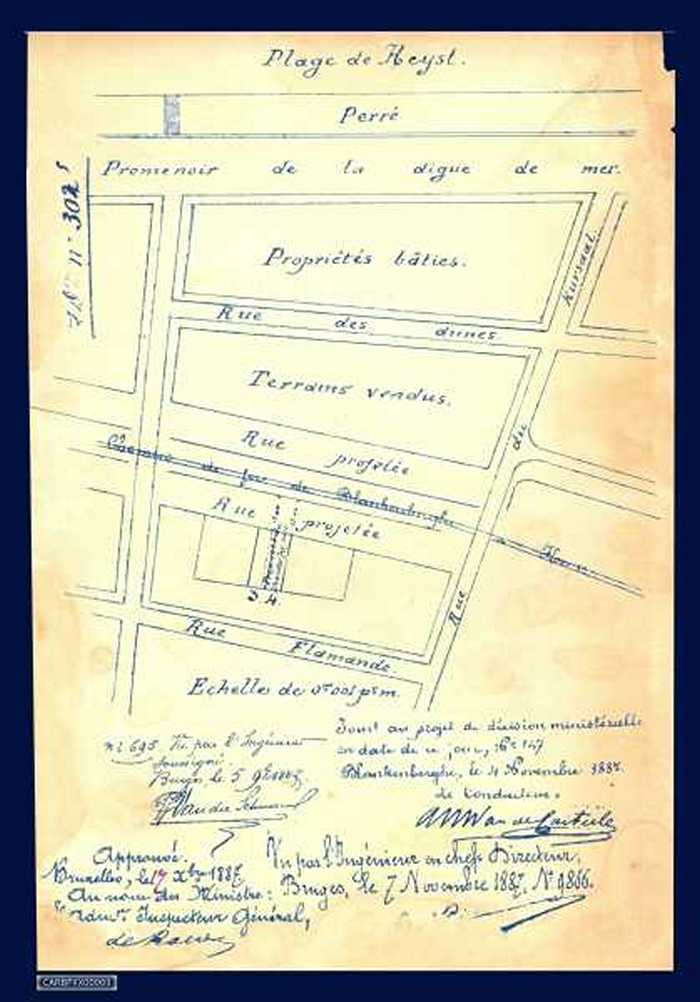 Plage de Heyst.
Perré
Promenoir de la digue de mer.
n° 302
Propriétés bâties.
Kursaal.
Rue des dunes
Terrains vendus.
du
Rue projetée
Chemin de fer de Blankenberghe à Heyst
Rue projetée
3. 4.
Rue
Rue Flamande
Echelle de 0m001 p. m.
n° 695 Vu par l'Ingénieur
soussigné.
Bruges, le 5 9bre 1887
Joint au projet de décision ministérielle
en date de ce jour, N° 147
Blankenberghe, le 4 Novembre 1887.
Le Conducteur.
Approuvé.
Bruxelles, le 17 Xbre 1887
Au nom du Ministre:
Inspecteur Général,
Vu par l'Ingénieur en chef Directeur,
Bruges, le 7 Novembre 1887. N° 9866.
CARBFYX00003